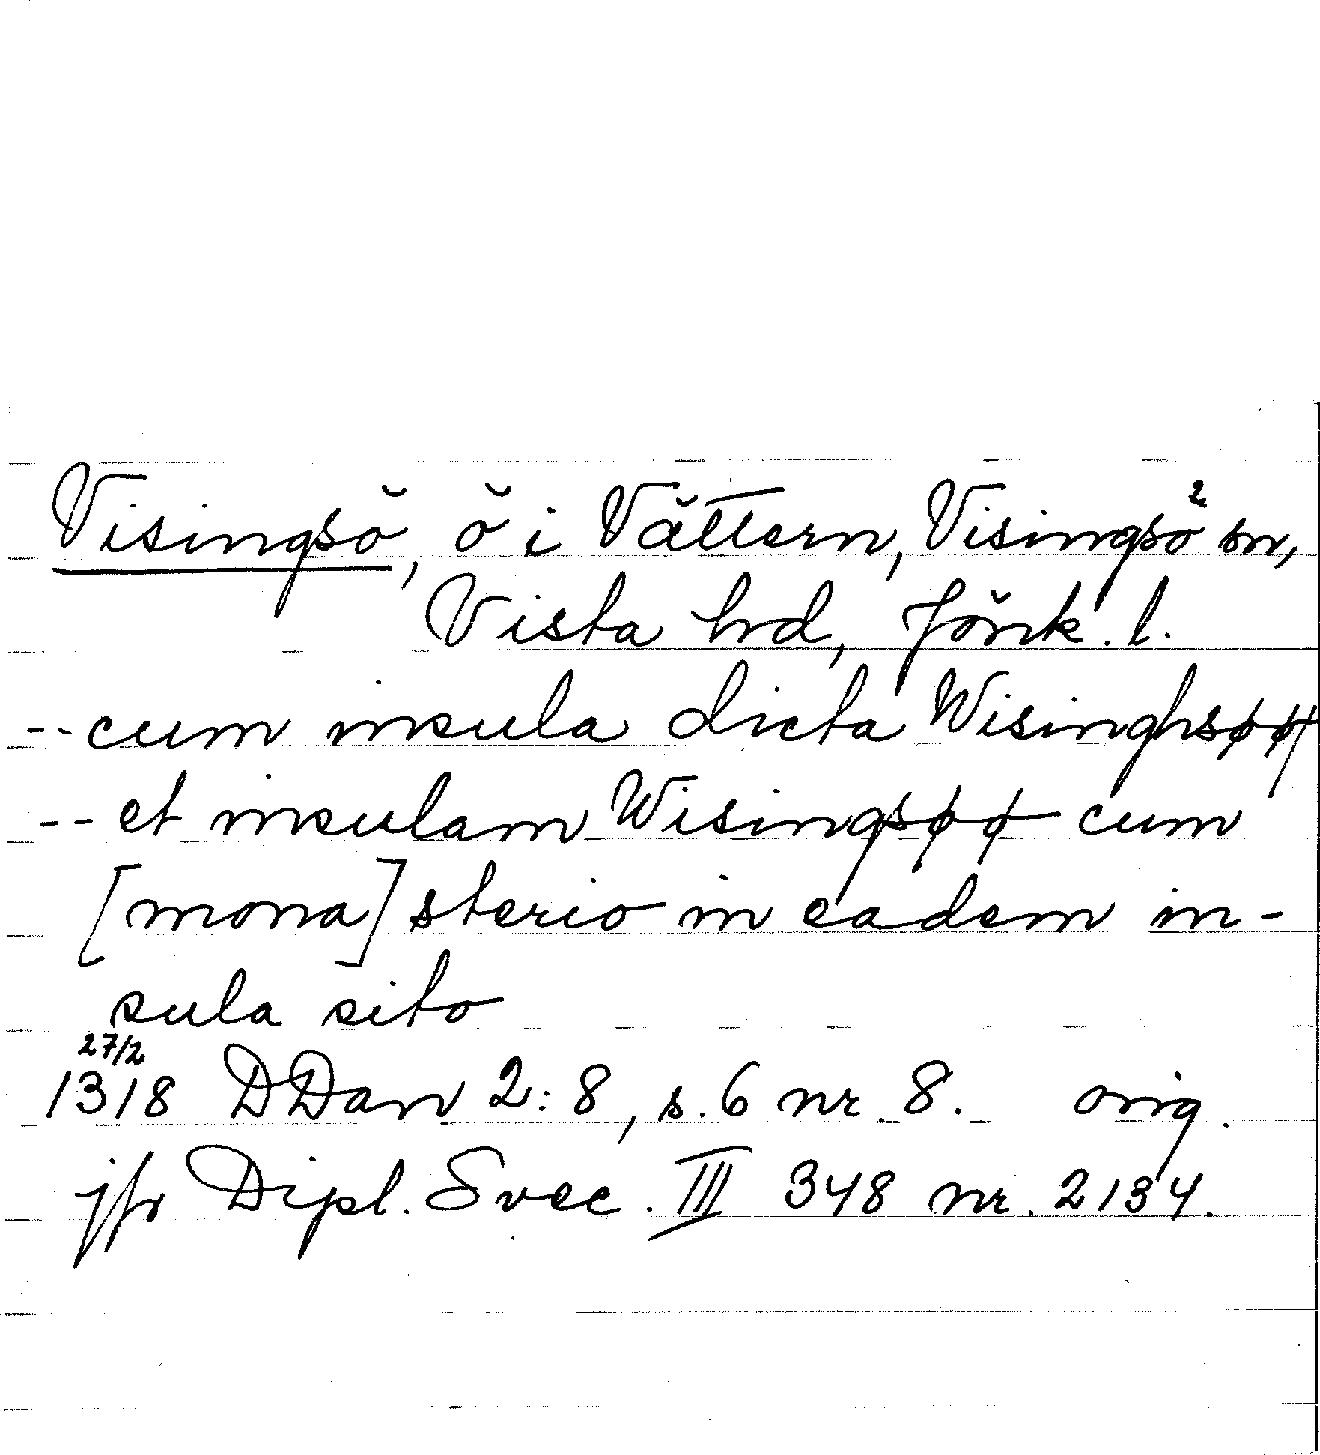 Visingsö, ö i Vättern, Visingsö sn,
Vista hd, Jönk. l.
-- cum insula dicta Wisinghsøø
-- et insulam Wisingsøø cum
[mona]sterio in eadem in-
sula sito
27/2
1318 DDan 2:8, s. 6 nr. 8. orig.
jfr Dipl. Svec. III 348 nr. 2134.